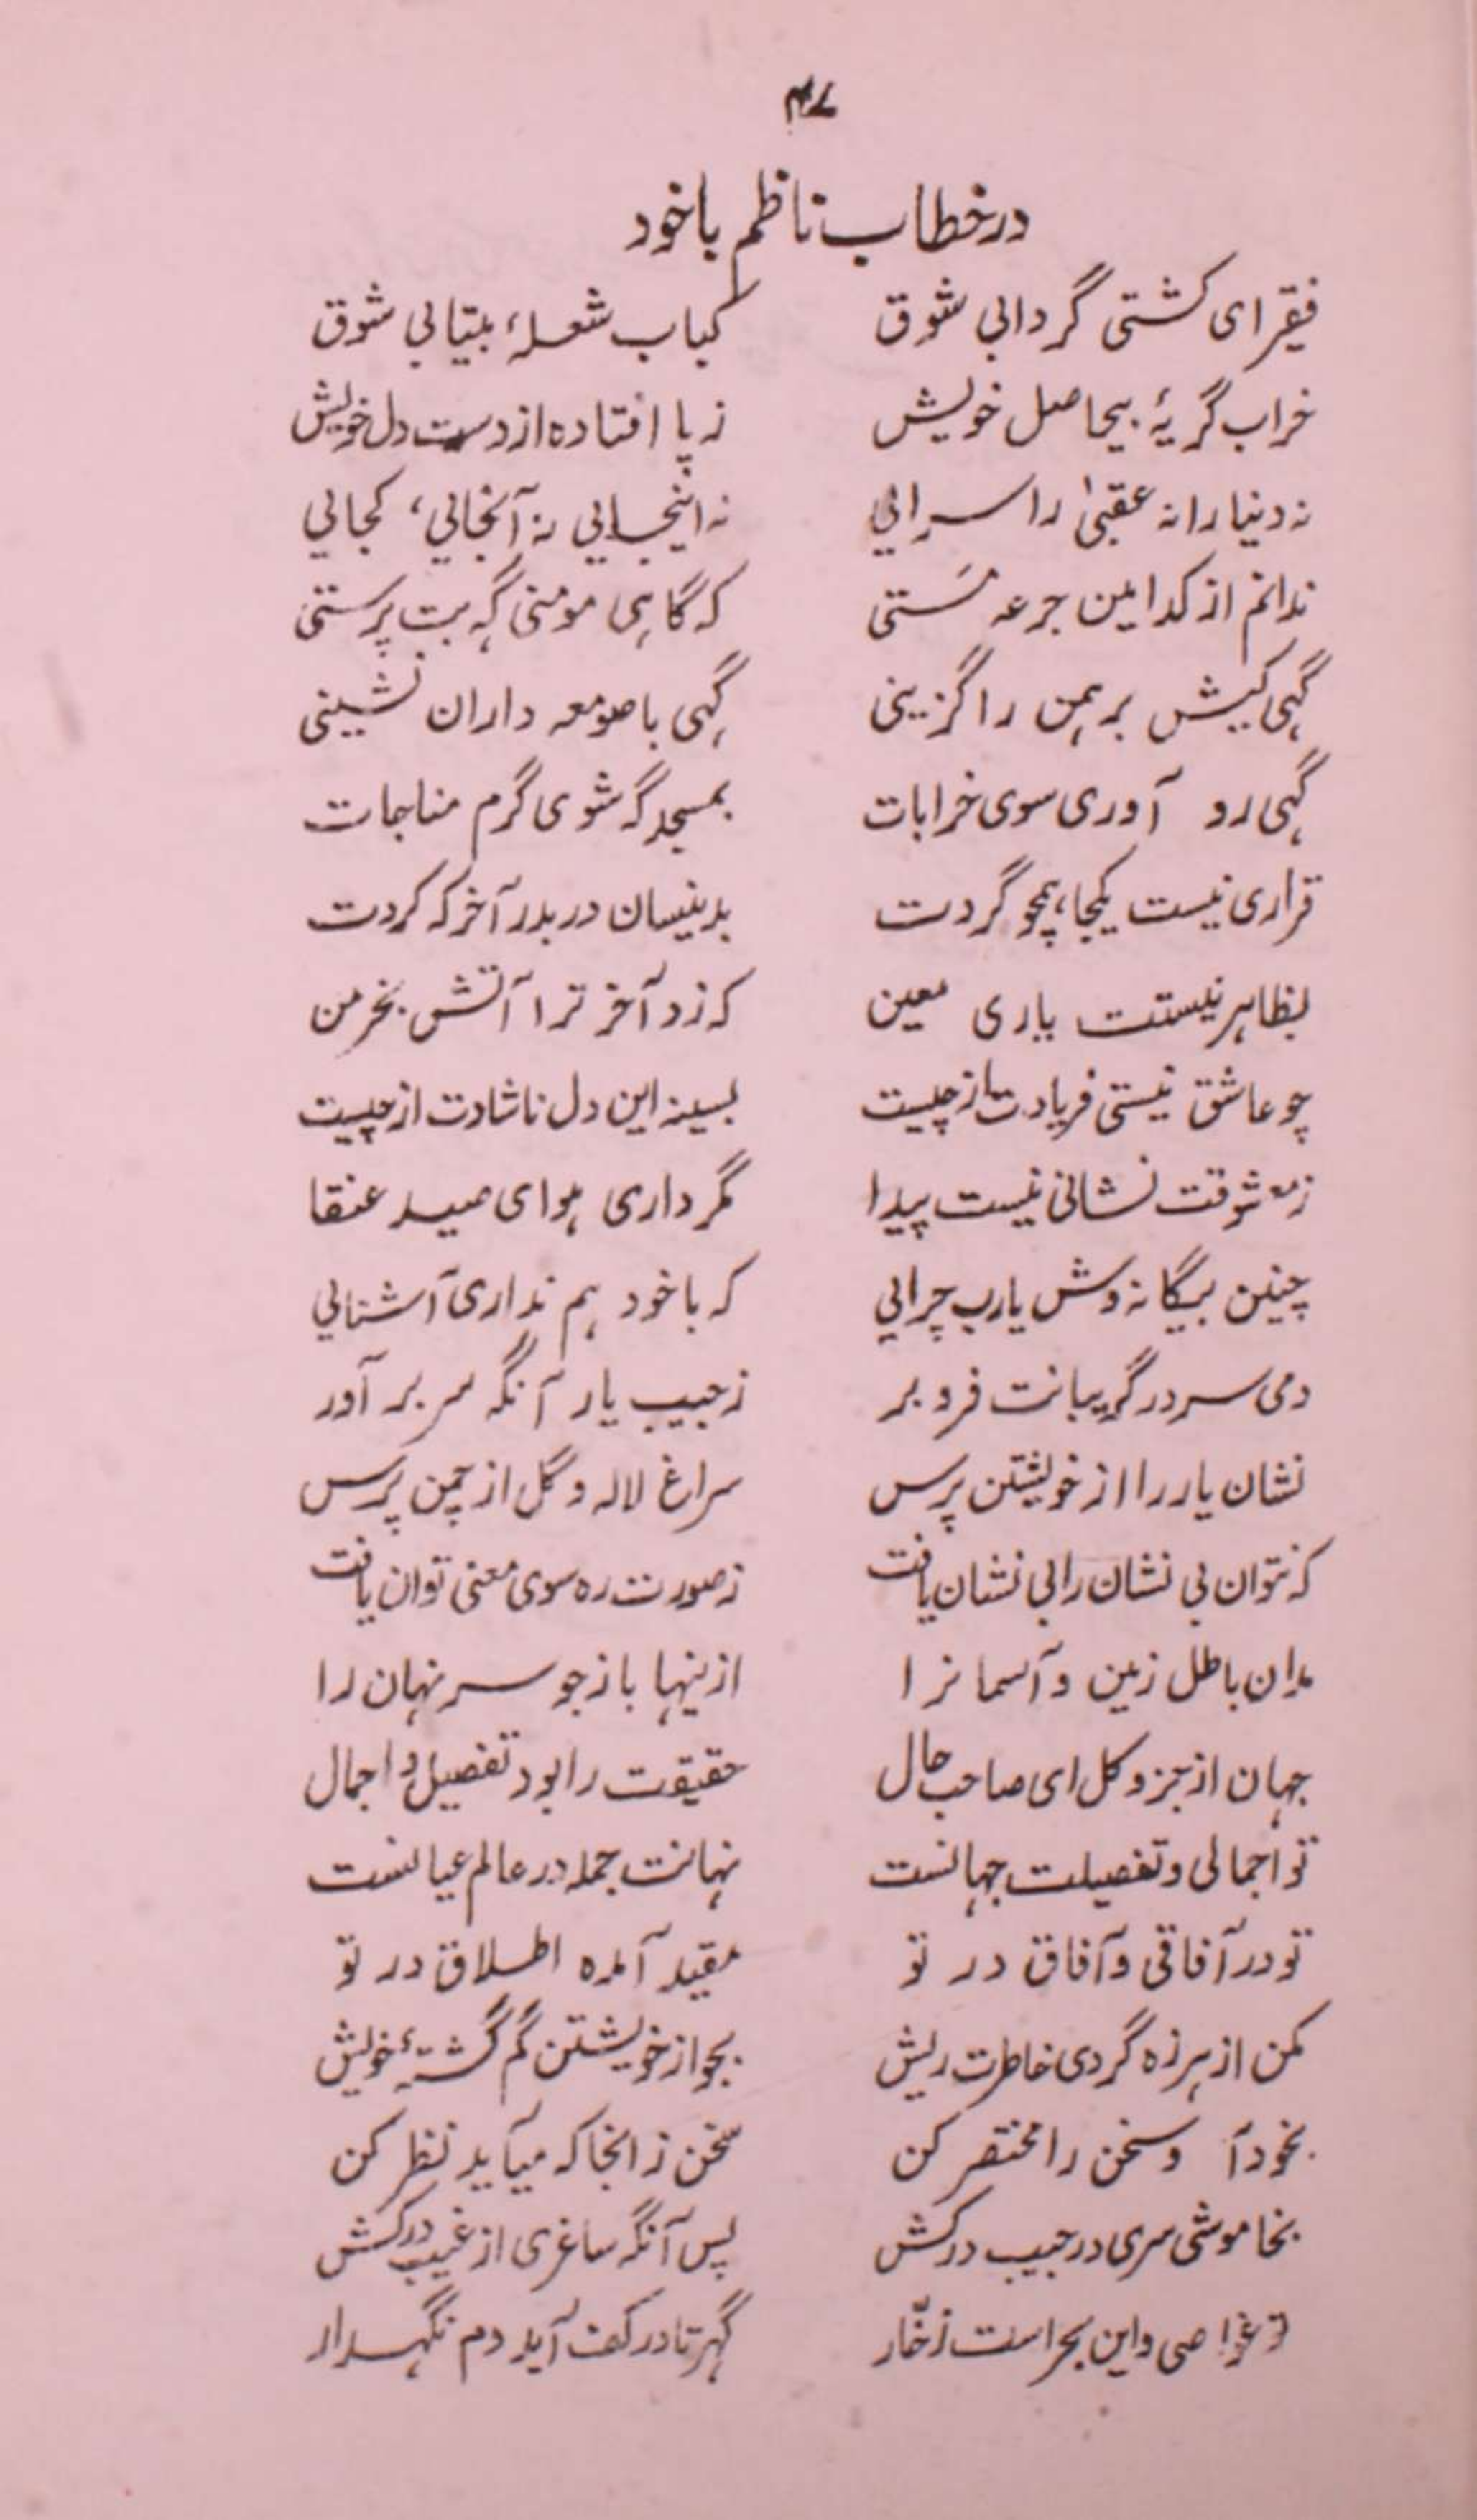 ۴۷
در خطاب ناظم باخود
فقیر ای کشتی گردابی شوق کباب شعلهٔ بیتابی شوق
خراب گریهٔ بیحاصل خویش ز پا افتاده از دست دل خویش
نه دنیا را نه عقبیٰ را سرایی نه اینجایی نه آنجایی، کجایی
ندانم از کدامین جرعه مَستی که گاهی مومنی گه بت پرستی
گهی کیش برهمن را گزینی گهی با صومعه داران نشینی
گهی رو آوری سوی خرابات بمسجد گه شوی گرم مناجات
قراری نیست یکجا، همچو گردت بدینسان دربدر آخر که کردت
بظاهر نیستت یاری معین که زد آخر ترا آتش بخرمن
چو عاشق نیستی فریادت از چیست بسینه این دل ناشادت از چیست
ز معشوقت نشانی نیست پیدا مگر داری هوای صید عنقا
چنین بیگانه وش یارب چرایی که با خود هم نداری آشنایی
دمی سر در گریبانت فرو بر ز جیب یار آنگه سر بر آور
نشان یار را از خویشتن پرس سراغ لاله و گل از چمن پرس
که نتوان بی نشان را بی نشان یافت ز صورت ره سوی معنی توان یافت
مدان باطل زمین و آسمانرا ازینها باز جو سر نهان را
جهان از جز و کل ای صاحب حال حقیقت را بود تفصیل و اجمال
تو اجمالی و تفصیلت جهانست نهانت جمله در عالم عیانست
تو در آفاقی و آفاق در تو مقید آمده اطلاق در تو
مکن از هرزه گردی خاطرت ریش بجو از خویشتن گم گشتهٔ خویش
بخود آ و سخن را مختصر کن سخن ز انجا که میآید نظر کن
بخاموشی سری در جیب درکش پس آنگه ساغری از غیب درکش
تو غواصی و این بحر است زخّار گهر تا در کف آید دم نگهدار